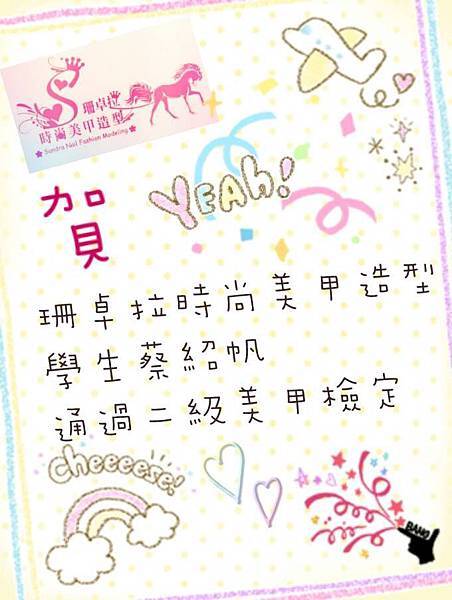 珊卓拉
時尚美甲造型
Sandra Nail Fashion Modeling
YEAH!
賀
珊卓拉時尚美甲造型
學生蔡紹帆
通過二級美甲檢定
cheeeese!
BANG